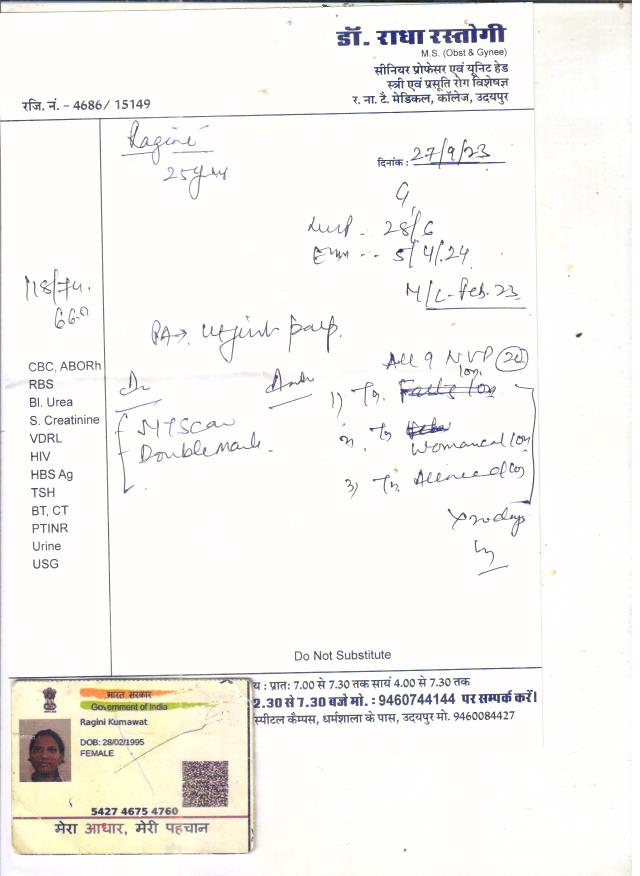 डॉ. राधा रस्तोगी
M.S. (Obst & Gynee)
सीनियर प्रोफेसर एवं यूनिट हेड
स्त्री एवं प्रसूति रोग विशेषज्ञ
र. ना. टै. मेडिकल, कॉलेज, उदयपुर
रजि. नं. - 4686/ 15149
Ragini
25yrs
दिनांक : 27/9/23
G
LMP - 28/6
5/4/24
M/C - Feb. 23
118/74
PA→
CBC, ABORh
RBS
Bl. Urea
S. Creatinine
VDRL
HIV
HBS Ag
TSH
BT, CT
PTINR
Urine
USG
NT Scan
Double Mark.
1) Tn.
2) Tn
3) Tn.
Do Not Substitute
य : प्रात: 7.00 से 7.30 तक सायं 4.00 से 7.30 तक
2.30 से 7.30 बजे मो. : 9460744144 पर सम्पर्क करें।
स्पीटल कैम्पस, धर्मशाला के पास, उदयपुर मो. 9460084427
भारत सरकार
Government of India
Ragini Kumawat
DOB: 28/02/1995
FEMALE
5427 4675 4760
मेरा आधार, मेरी पहचान